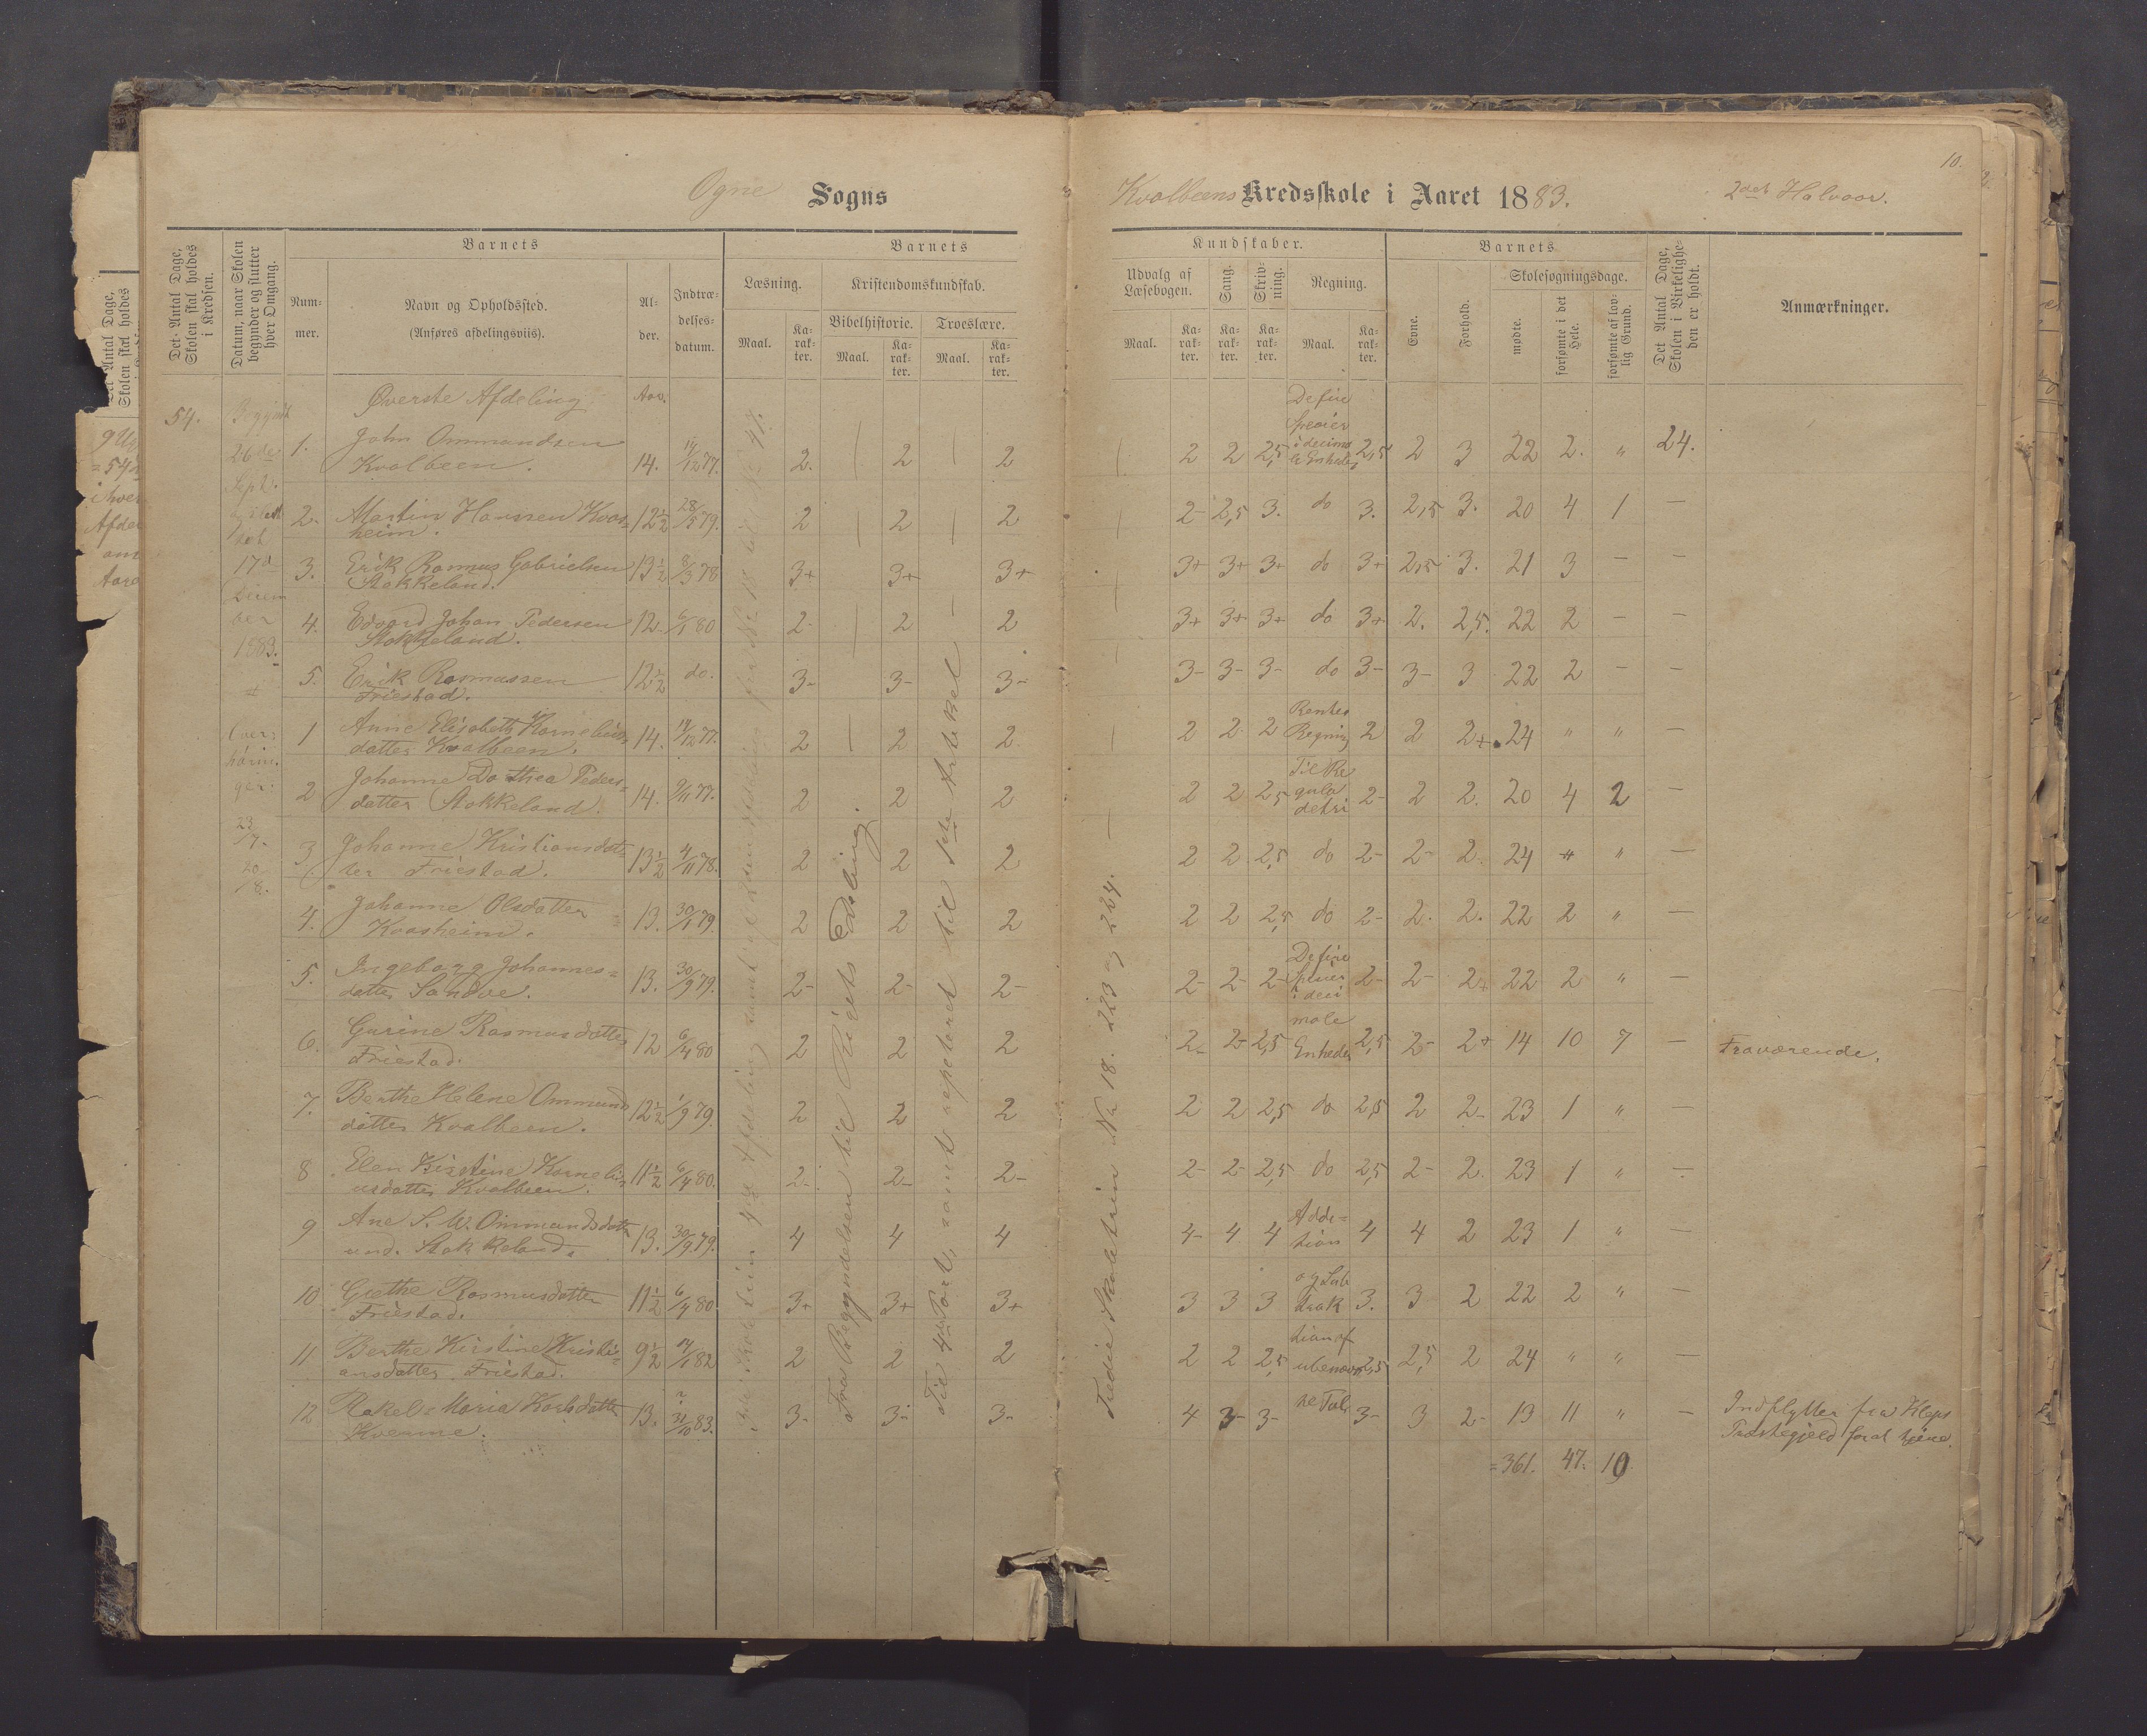 10.
Ogne Sogns Kvalbeens Kredsskole i Aaret 1883. 2det Halvaar.
Det Antal Dage, Skolen skal holdes i Kredsen.
Datum, naar Skolen begynder og slutter hver Omgang.
Barnets
Num-mer.
Navn og Opholdssted.
(Anføres afdelingsviis).
Al-der.
Indtræ-delses-datum.
Barnets
Læsning.
Maal.
Ka-rak-ter.
Kristendomskundskab.
Bibelhistorie.
Maal.
Ka-rak-ter.
Troeslære.
Maal.
Ka-rak-ter.
Kundskaber.
Udvalg af Læsebogen.
Maal.
Ka-rak-ter.
Sang.
Ka-rak-ter.
Skriv-ning.
Ka-rak-ter.
Regning.
Maal.
Ka-rak-ter.
Barnets
Evne.
Forhold.
Skolesøgningsdage.
mødte.
forsømte i det Hele.
forsømte af lov-lig Grund.
Det Antal Dage, Skolen i Virkelighe-den er holdt.
Anmærkninger.
Øverste Afdeling. Aar.
54.
26de
Sept.
17de
1883.
23/7.
20/8.
1. John Ommundsen
Kvalbeen. 14. 14/12 77. 2. 2 2 2 2 2,5 2,5 2 3 22 2. " 24.
2. Martin Hanssen Kvas=
heim. 12½ 28/5 79. 2 2 2 2- 2,5 3. do 3. 2,5 3. 20 4 1 —
3. Erik Rasmus Gabrielsen
Stokkeland. 13½ 8/3 78 3+ 3+ 3+ 3+ 3+ 3+ do 3+ 2,5 3. 21 3 — —
4. Edvard Johan Pedersen
Stokkeland. 12. 6/1 80 2- 2 2 3+ 3+ 3+ do 3+ 2. 2,5. 22 2 — —
5. Erik Rasmussen
Friestad. 12½ do. 3- 3- 3- 3- 3- 3- do 3- 3- 3 22 2 — —
1 Anne Elisabeth Kornelius
datter Kvalbeen. 14. 14/12 77. 2 2 2. 2 2 2 Rentes
Regning 2 2 2+ 24 " "
2 Johanne Dorthea Peders=
datter Stokkeland. 14. 9/11 77. 2 2 2 2 2 2,5 Til Re
gula
detri 2- 2 2. 20 4 2 —
3. Johanne Kristiansdat=
ter Friestad. 13½ 4/11 78. 2 2 2 2 2 2,5 do 2- 2- 2. 24 " " —
4. Johanne Olsdatter
Kvasheim. 13. 30/1 79. 2 2 2 2 2 2,5 do 2- 2. 2. 22 2 " —
5. Ingeborg Johannes=
datter Sandve. 13. 30/9 79. 2- 2- 2- 2- 2- 2- 2- 2- 2+ 22 2 " —
6. Gurine Rasmusdatter
Friestad. 12 6/4 80 2 2 2 2- 2- 2,5 Enheder 2,5 2- 2+ 14 10 7 — Fraværende.
7. Berthe Helene Ommunds
datter Kvalbeen. 12½ 1/9 79. 2 2 2 2 2 2,5 do 2,5 2 2- 23 1 " —
8 Elen Kirstine Korneli=
usdatter Kvalbeen. 11½ 6/4 80. 2- 2- 2- 2- 2- 2,5 do 2,5 2- 2. 23 1 " —
9 Ane S. W. Ommundsdatter
und. Stokkeland. 13. 30/9 79. 4 4 4 4- 4 4 Addi=
tion 4 4 2 23 1 " —
10 Grethe Rasmusdatter
Friestad. 11½ 6/4 80 3+ 3+ 3+ 3 3 3 og Sub
trak 3. 3 2 22 2 " —
11 Berthe Kirstine Kristi=
ansdatter Friestad. 9½ 14/1 82 2 2 2 2 2 2,5 tion af
ubenævn 2,5 2,5 2 24 " " —
12 Rakel Maria Karlsdatter
13. 31/10 83. 3- 3- 3- 4 3- 3- ne Tal. 3- 3 2- 13 11 " — Indflytter fra Kleps
Præstegjeld for at tjene.
=361. 47. 10
Fra Begyndelsen til Rigets Deling.
Til 4de Part, samt repeteret til 1ste Artikel
Tredie Skoletrin Nr 18. 223 og 224.